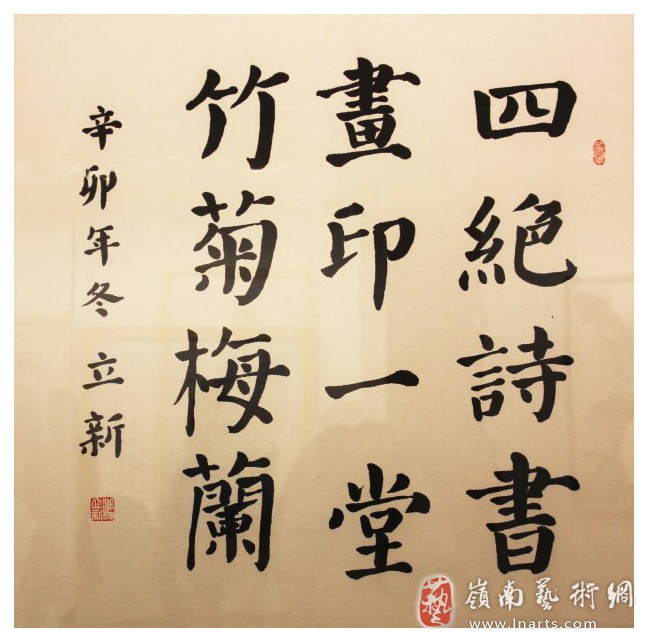 四絕詩書
畫印一堂
竹菊梅蘭
辛卯年冬立新
嶺南藝術網
www.lnarts.com